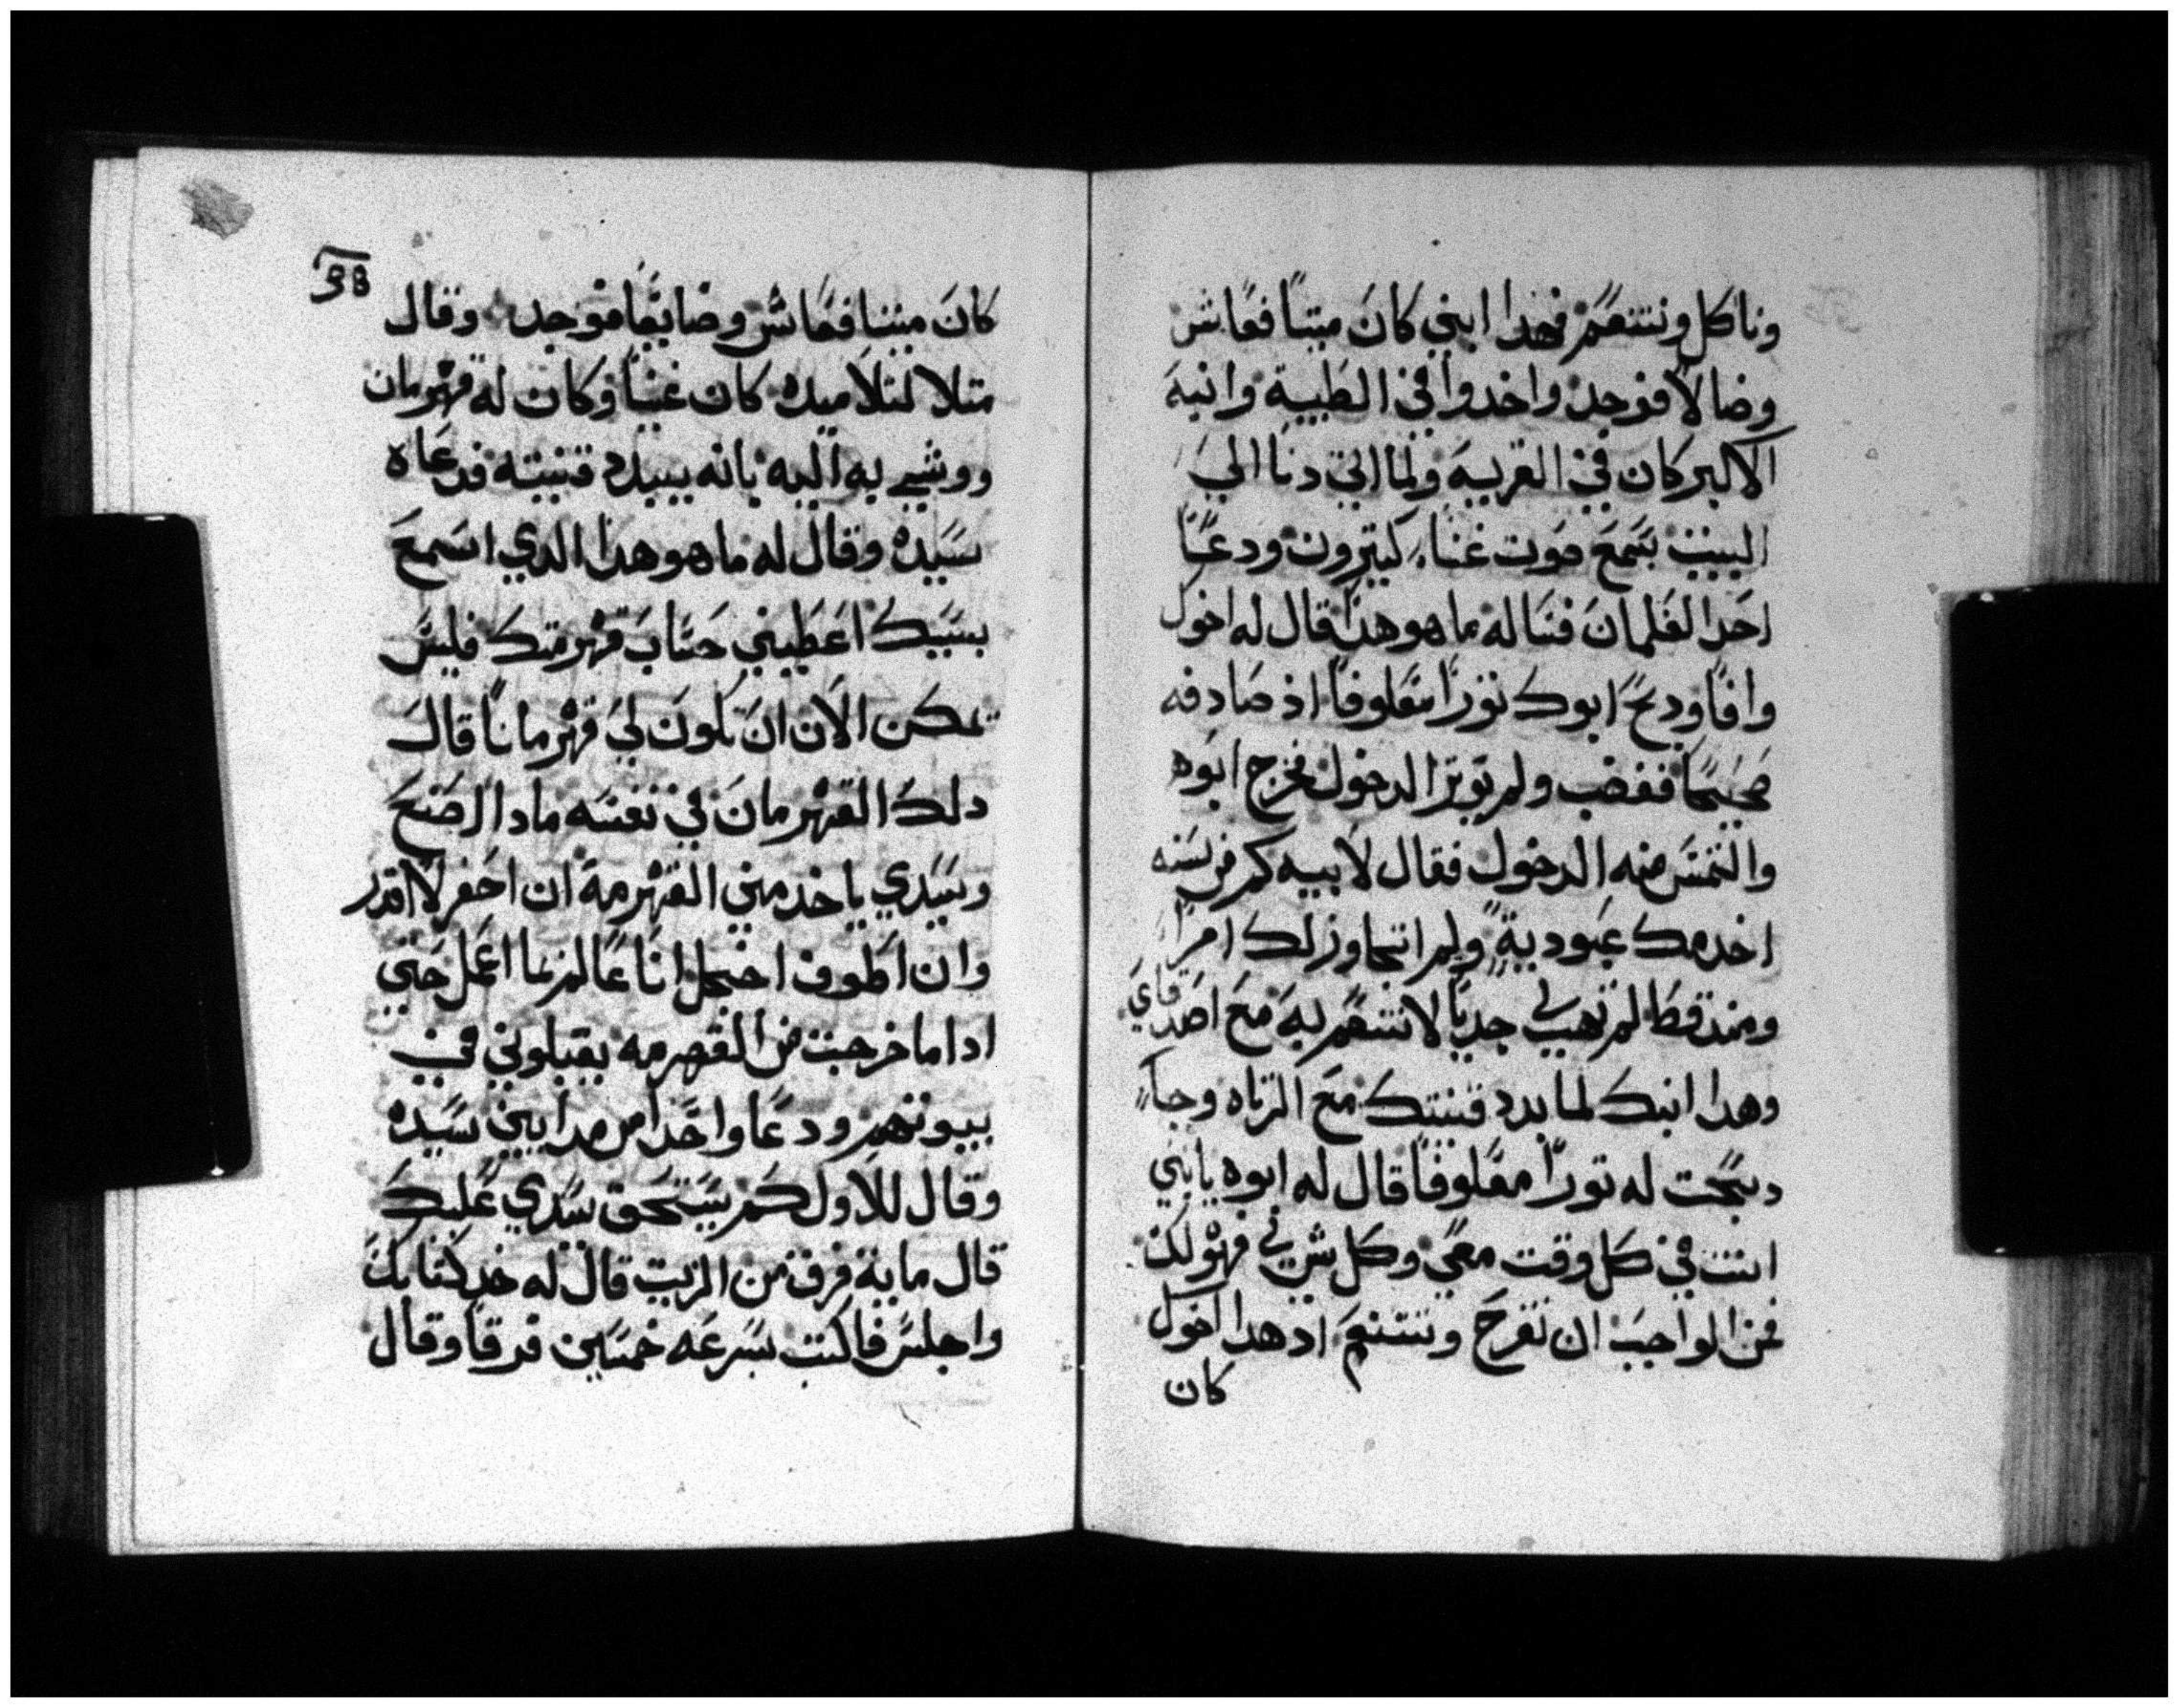 وناكل ونتنعم فهدا ابني كان ميتا فعاش
وضالا فوجد واخدوا في الطيبة وابنه
الاكبر كان في القرية ولما اتي دنا الي
البيت سمع صوت غناء كتيرون ودعا
احد الغلمان فساله ما هو هدا قال له اخوك
وافا ودبح ابوك تورا معلوفا اد صادفه
صحيحا فغضب ولم يوتر الدخول فخرج ابوه
والتمس منه الدخول فقال لابيه كم من سنه
اخدمك عبودية ولم اتجاوز لك امرا
ومند قط لم تهب لي جديا لاتنعم به مع اصدقاي
وهدا ابنك لما بدد قنيتك مع الزناه وجاء
دبحت له تورا معلوفا قال له ابوه يابني
انت في كل وقت معي وكل شي لي فهو لك
فمن الواجب ان نفرح ونتنعم اد هدا اخوك
كان
38
كان ميتا فعاش وضايعا فوجد وقال
متلا لتلاميده كان غنيا وكان له قهرمان
ووشي به اليه بانه يبدد قنيته فدعاه
سيده وقال له ما هو هدا الدي اسمع
بسببك اعطيني حساب قهرمتك فليس
تمكن الان ان تكون لي قهرمانا قال
دلك القهرمان في نفسه مادا اصنع
وسيدي ياخد مني القهرمة ان احفر لا اقدر
وان اطوف اخجل انا عالم بما اعمل حتي
ادا ما خرجت من القهرمه يقبلوني في
بيوتهم ودعا واحدا من مدايني سيده
وقال للاول كم يستحق سيدي عليك
قال ماية فرق من الزيت قال له خد كتابك
واجلس فاكتب بسرعه خمسين فرقا وقال